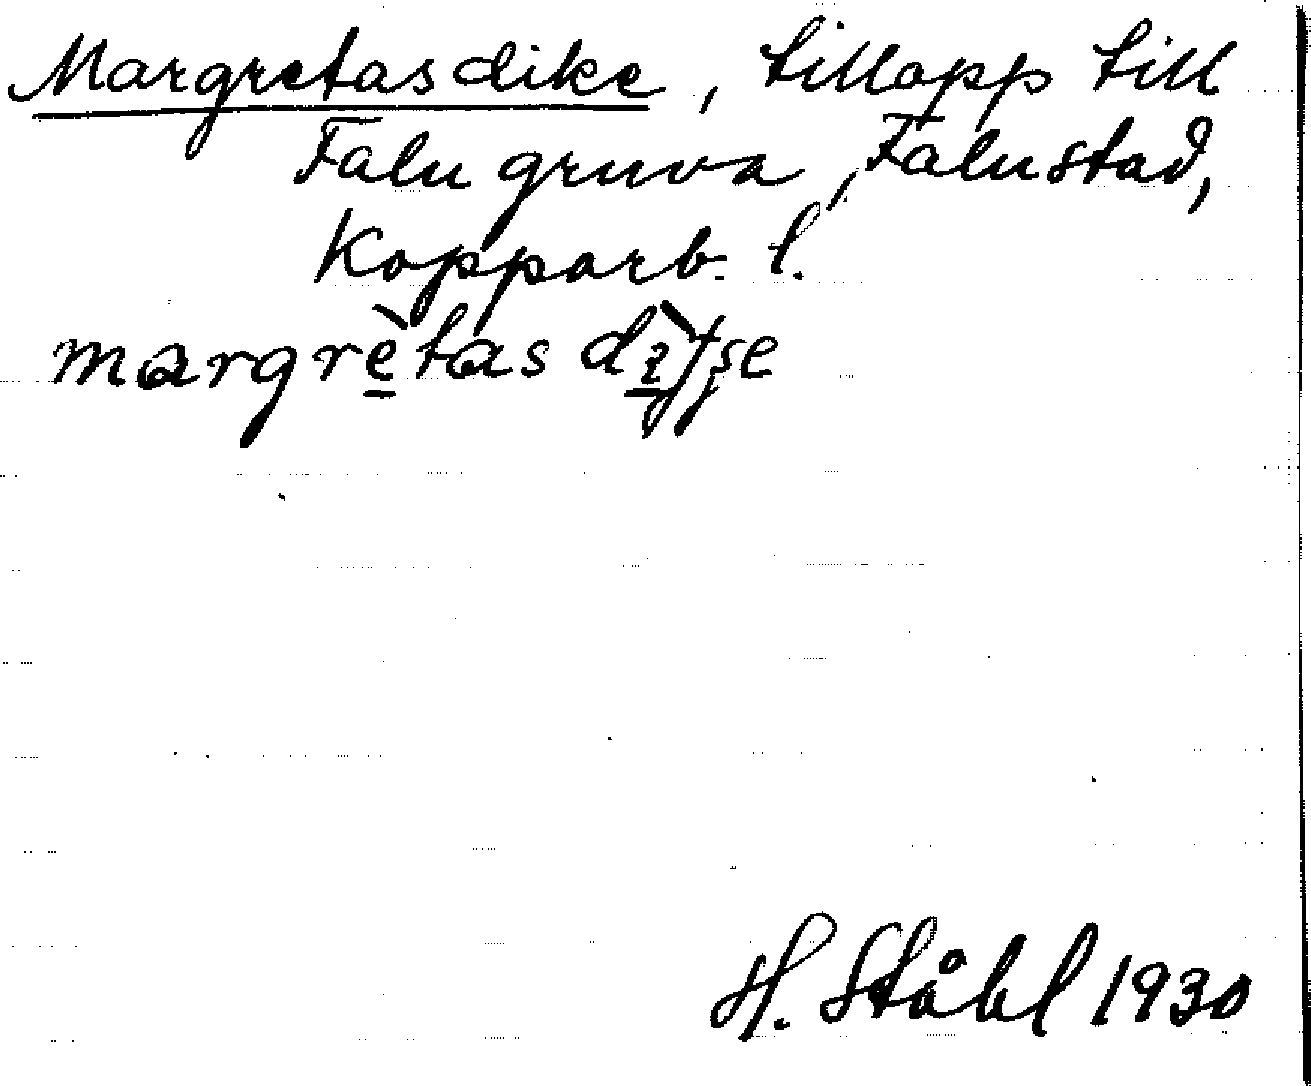 Margretas dike, tillopp till
Falu gruva, Falu stad,
Kopparb. l.
margrètas
H. Ståhl 1930